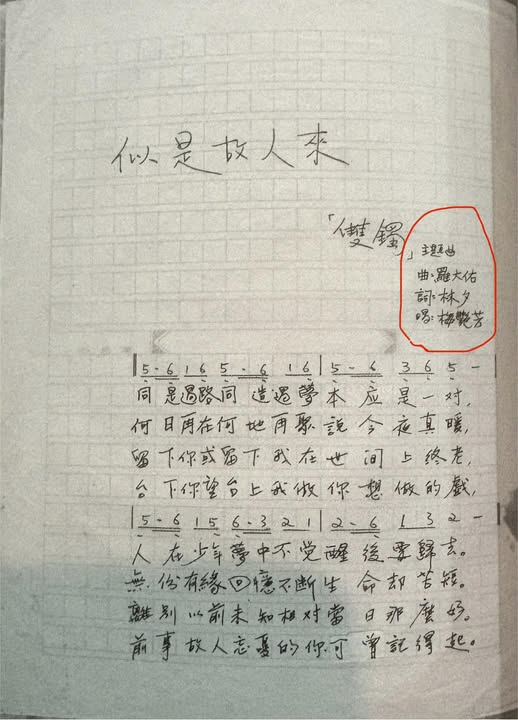 似是故人來
「雙鐲」主題曲
曲:羅大佑
詞:林夕
唱:梅艷芳
|5-6 1 6 5-6 1 6|5-6 3 6 5-
同是過路同造過夢本应是一对,
何日再在何地再聚說今夜真暖,
留下你或留下我在世间上终老,
台下你望台上我做你想做的戲,
|5-6 1 5 6-3 2 1|2-6 1 3 2-
人在少年夢中不觉醒後要歸去。
無份有緣回憶不断生命却苦短。
離別以前未知相对當日那麼好。
前事故人忘憂的你可曾記得起。